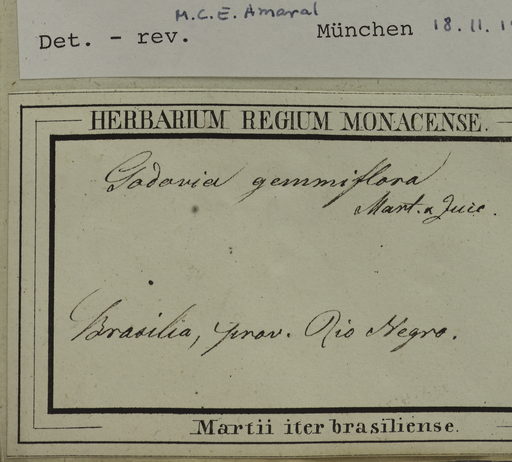 M.C.E. Amaral
Det. - rev. München 18.11.
HERBARIUM REGIUM MONACENSE.
Godovia gemmiflora
Mart. & Zucc.
Brasilia, prov. Rio Negro.
Martii iter brasiliense.